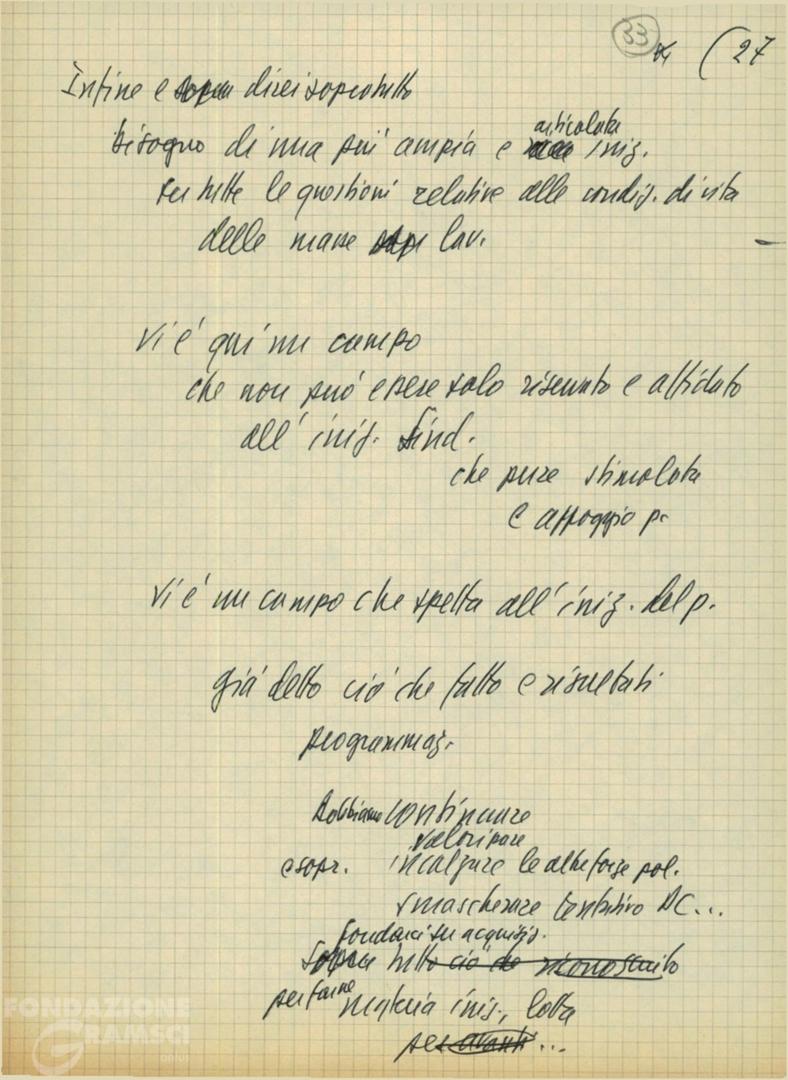 33
(27
Infine e sopra direi sopratutto
bisogno di una più ampia e articolata iniz.
su tutte le questioni relative alle condiz. di vita
delle masse lav.
Vi è qui un campo
che non può essere solo riservato e affidato
all' iniz. sind.
che pure stimolata
e appoggio p.
Vi è un campo che spetta all' iniz. del p.
già detto ciò che fatto e risultati
programmaz.
Dobbiamo continuare
valorizzare
e sopr. incalzare le altre forze pol.
smascherare tentativo DC...
fondarci su acquisiz.
tutto ciò che riconosciuto
per farne materia iniz., lotta
per avanti...
FONDAZIONE
GRAMSCI